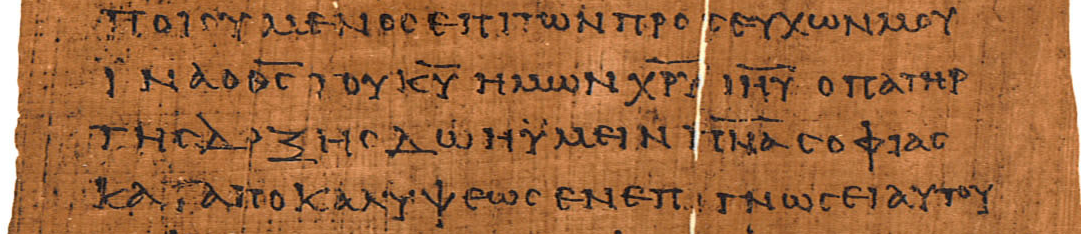 ποιουμενοσεπιτωνπροσευχωνμου
ιναοθ̅ς̅τουκ̅υ̅ημωνχ̅ρ̅υ̅ιη̅υ̅οπατηρ
τησδοξησδωηυμεινπ̅ν̅α̅σοφιας
και αποκαλυψεωσενεπιγνωσειαυτου